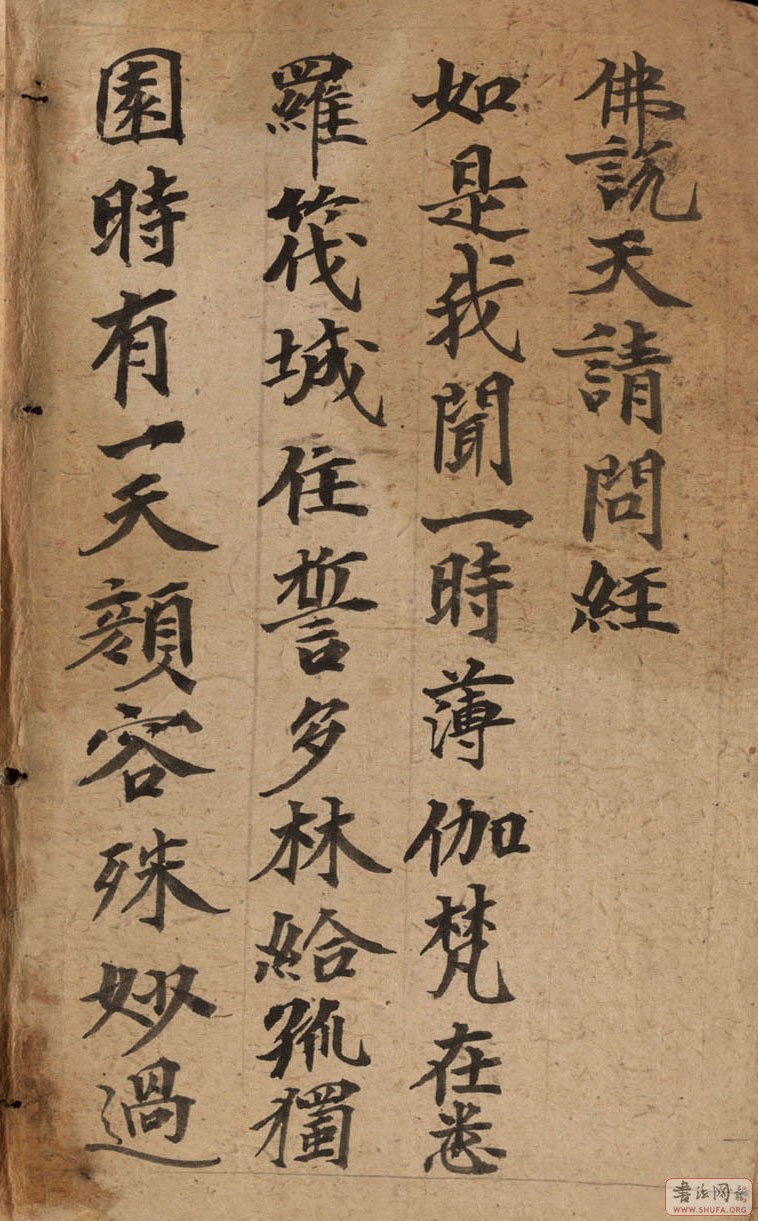 佛說天請問經
如是我聞一時薄伽梵在悉
羅筏城住誓多林給孤獨
園時有一天顏容殊妙過
書法网
WWW.SHUFA.ORG